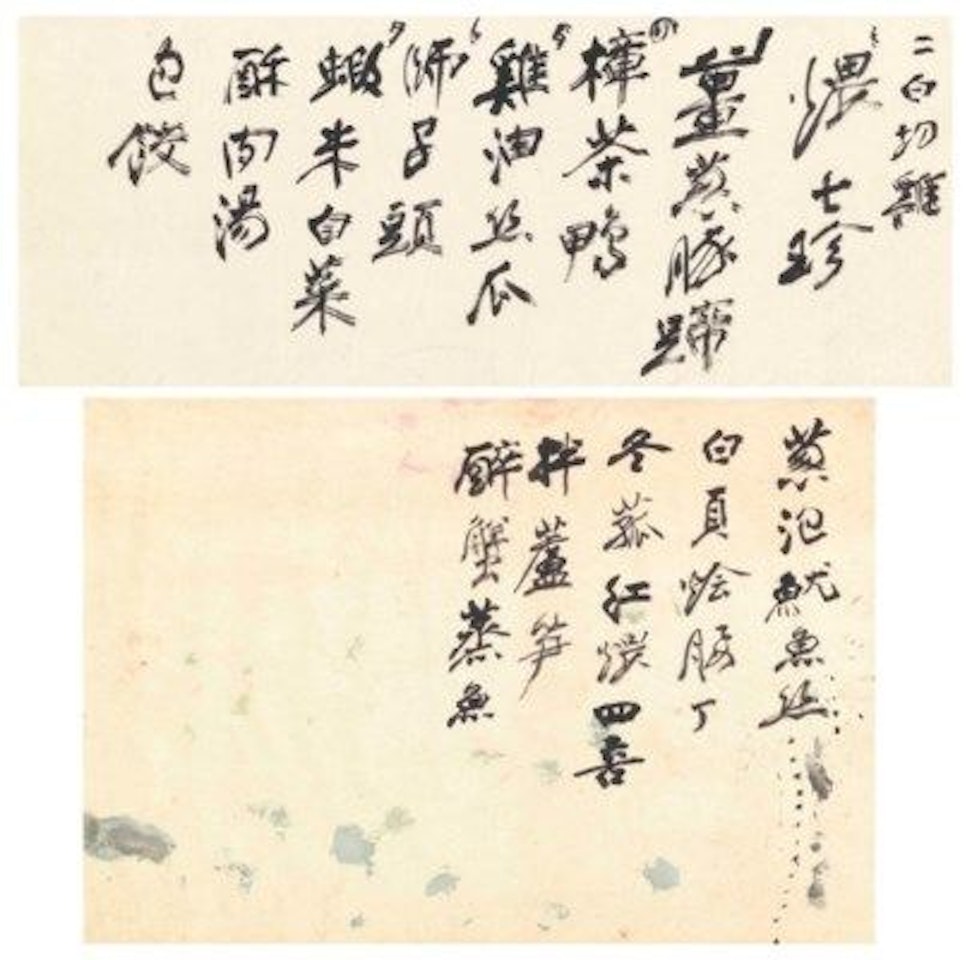 二白切雞
煨七珍
薑蒸豚蹄
樟茶鴨
雞油絲瓜
師子頭
蝦米白菜
酥肉湯
包餃
蔥泡魷魚絲
白頁燴腰丁
冬菰紅燒四喜
拌蘆笋
醉蟹蒸魚